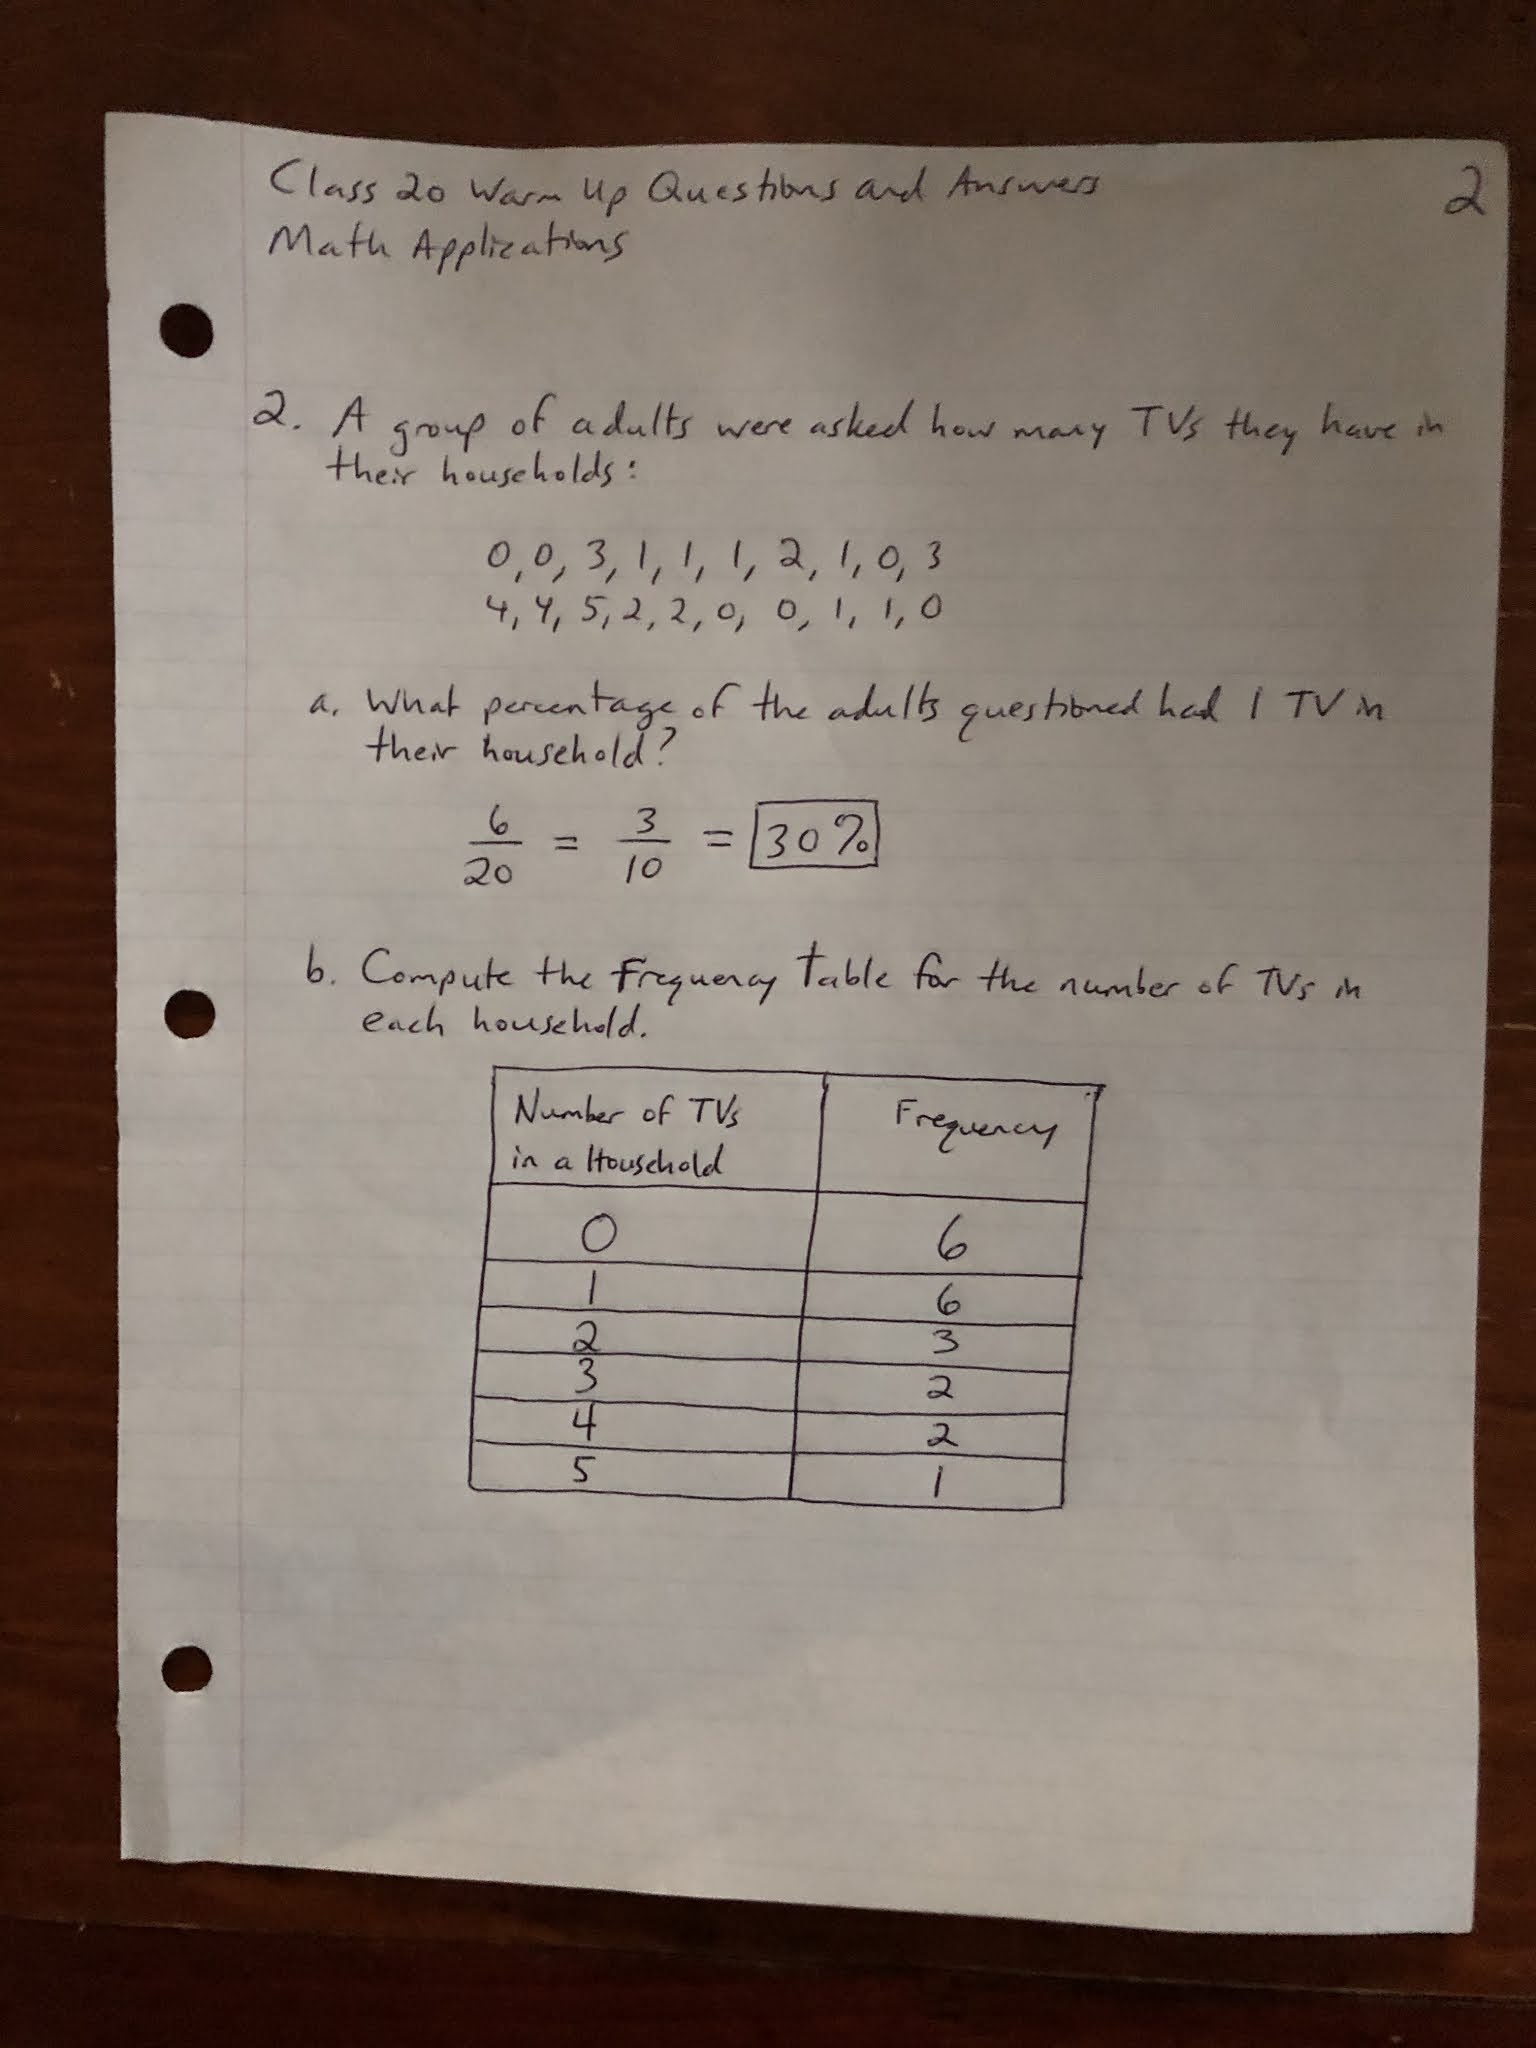 Class 20 Warm Up Questions and Answers
2
Math Applications
2. A group of adults were asked how many TVs they have in
their households:
0, 0, 3, 1, 1, 1, 2, 1, 0, 3
4, 4, 5, 2, 2, 0, 0, 1, 1, 0
a. What percentage of the adults questioned had 1 TV in
their household?
6/20 = 3/10 = 30%
b. Compute the Frequency Table for the number of TVs in
each household.
Number of TVs in a Household | Frequency
0 | 6
1 | 6
2 | 3
3 | 2
4 | 2
5 | 1